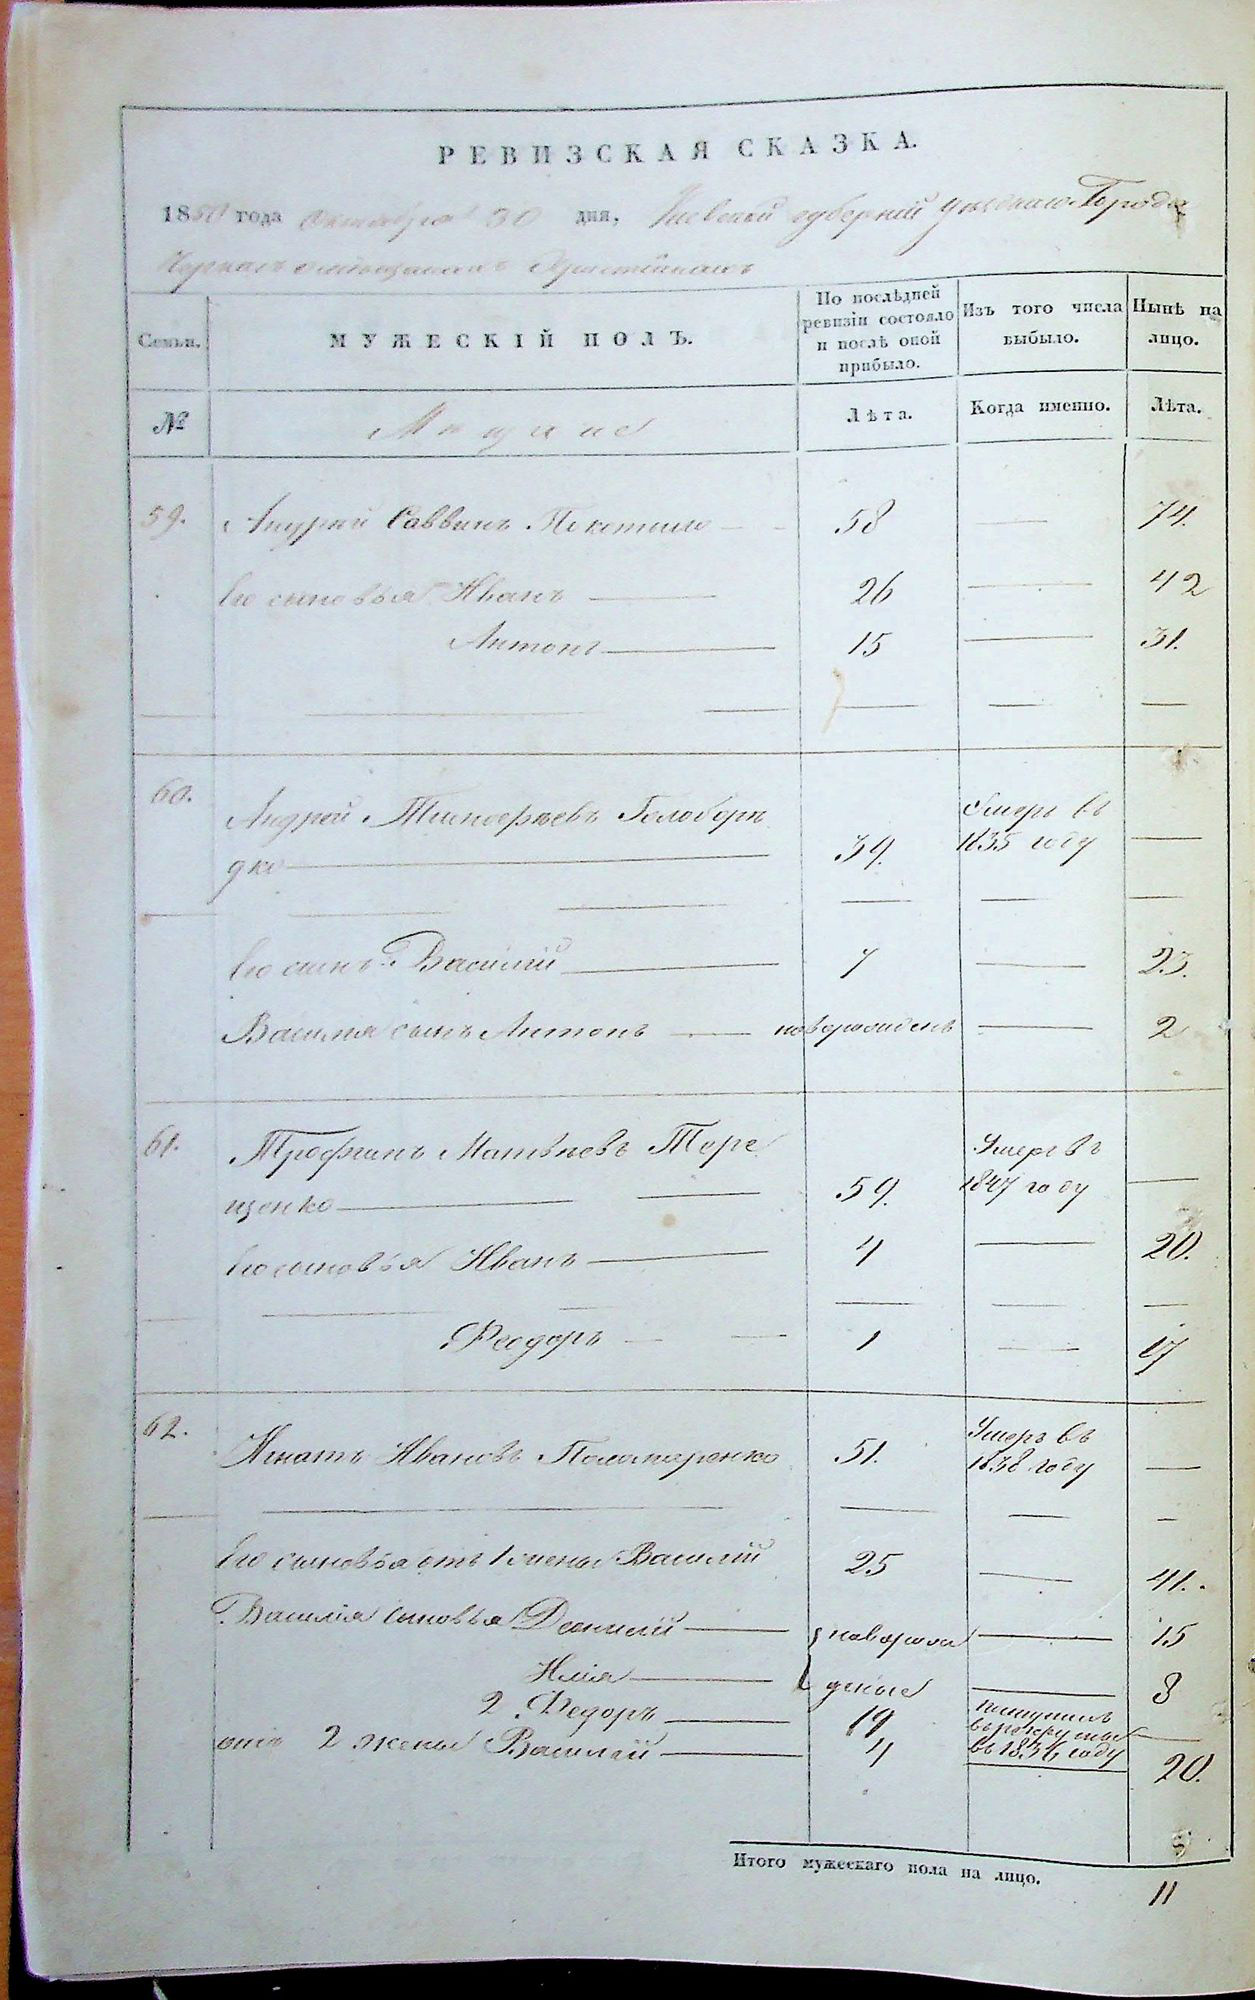 РЕВИЗСКАЯ СКАЗКА.
1850 года Октября 30 дня, Киевской губернiи уѣзднаго Города
Семьи.
МУЖЕСКIЙ ПОЛЪ.
По послѣдней ревизiи состояло и послѣ оной прибыло.
Изъ того числа выбыло.
Нынѣ на лицо.
№
Лѣта.
Когда именно.
Лѣта.
59. Андрей Саввинъ 58 — 74.
Его сыновья Иванъ — 26 — 42
Антонъ — 15 — 31.
60. Андрей Тимофѣевъ Голобородь Умеръ въ
дко — 39. 1835 году —
Его сынъ Василiй — 7 — 23.
Василiя сынъ Антонъ — новорожденъ — 2
61. Трофимъ Матвѣевъ Тере Умеръ въ
щенко — 59. 1847 году —
Его сыновья Иванъ — 4 — 20.
Феодоръ — 1 — 17
62. Игнатъ Ивановъ Поломаренко 51. Умеръ въ 1838 году —
Его сыновья отъ 1 жены Василiй 25 — 41.
Василiя сыновья — новорож — 15
Илiя — деные — 8
2. Федоръ — 19 поступилъ въ рекруты в 1834 году —
отъ 2 жены Василiй — 4 — 20.
Итого мужескаго пола на лицо.
11